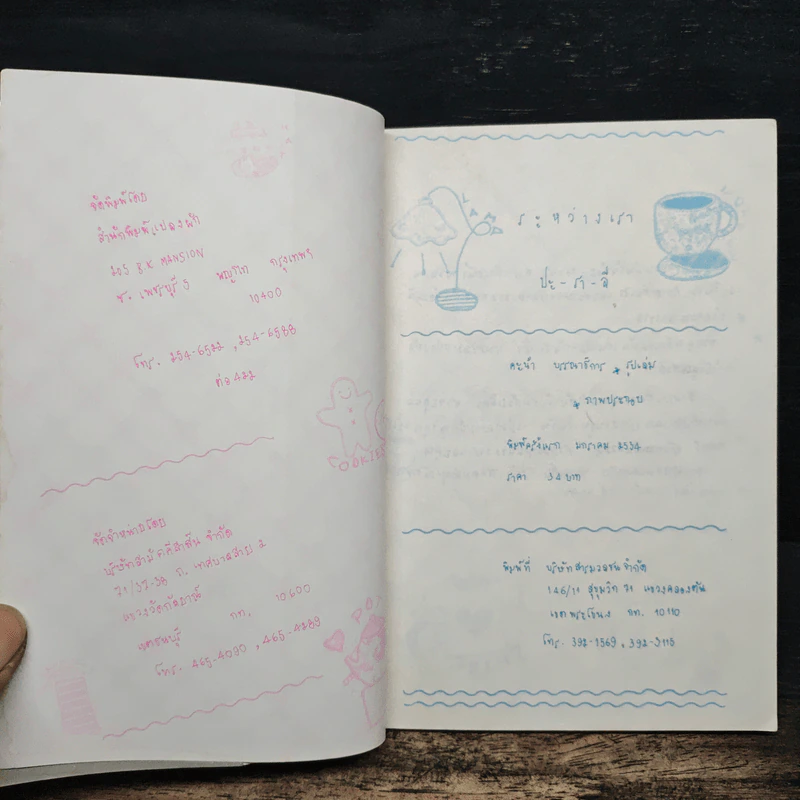 จัดพิมพ์โดย
สำนักพิมพ์แปลงผัก
205 B.K MANSION
ซ. เพชรบุรี 5 พญาไท กรุงเทพฯ
10400
โทร. 254-6522 , 254-6588
ต่อ 422
COOKIES
จัดจำหน่ายโดย
บริษัทสามัคคีสาส์น จำกัด
71/37-38 ถ. เทศบาลสาย 2
แขวงวัดกัลยาณ์
เขตธนบุรี กท. 10600
โทร. 465-4090 , 465-4289
ระหว่างเรา
ปะ-รา-ลี
คะน้า บรรณาธิการ * รูปเล่ม
* ภาพประกอบ
พิมพ์ครั้งแรก มกราคม 2534
ราคา 34 บาท
พิมพ์ที่ บริษัทสารมวลชน จำกัด
146/11 สุขุมวิท 71 แขวงคลองตัน
เขตพระโขนง กท. 10110
โทร. 392-1569, 392-2116